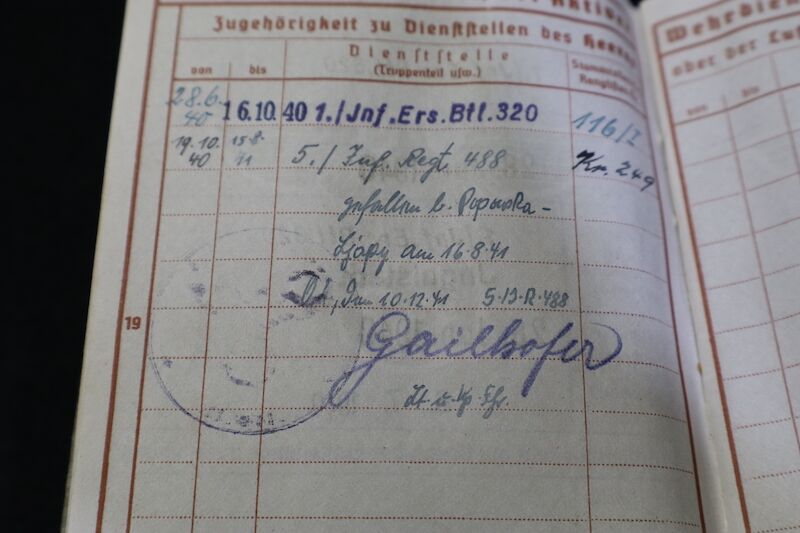 Zugehörigkeit zu Dienststellen des Heeres
Dienststelle
(Truppenteil usw.)
von
bis
28.6.
40
16.10.40 1./Inf.Ers.Btl.320
116/I
19.10.
40
15.8.
41
5./ Inf. Regt 488
Kr. 249
gefallen b.
am 16.8.41
10.12.41 5.I.R.488
19
Gailhofer
Lt. u. Kp. Fhr.
Wehrdien
oder der Luf
von
bis